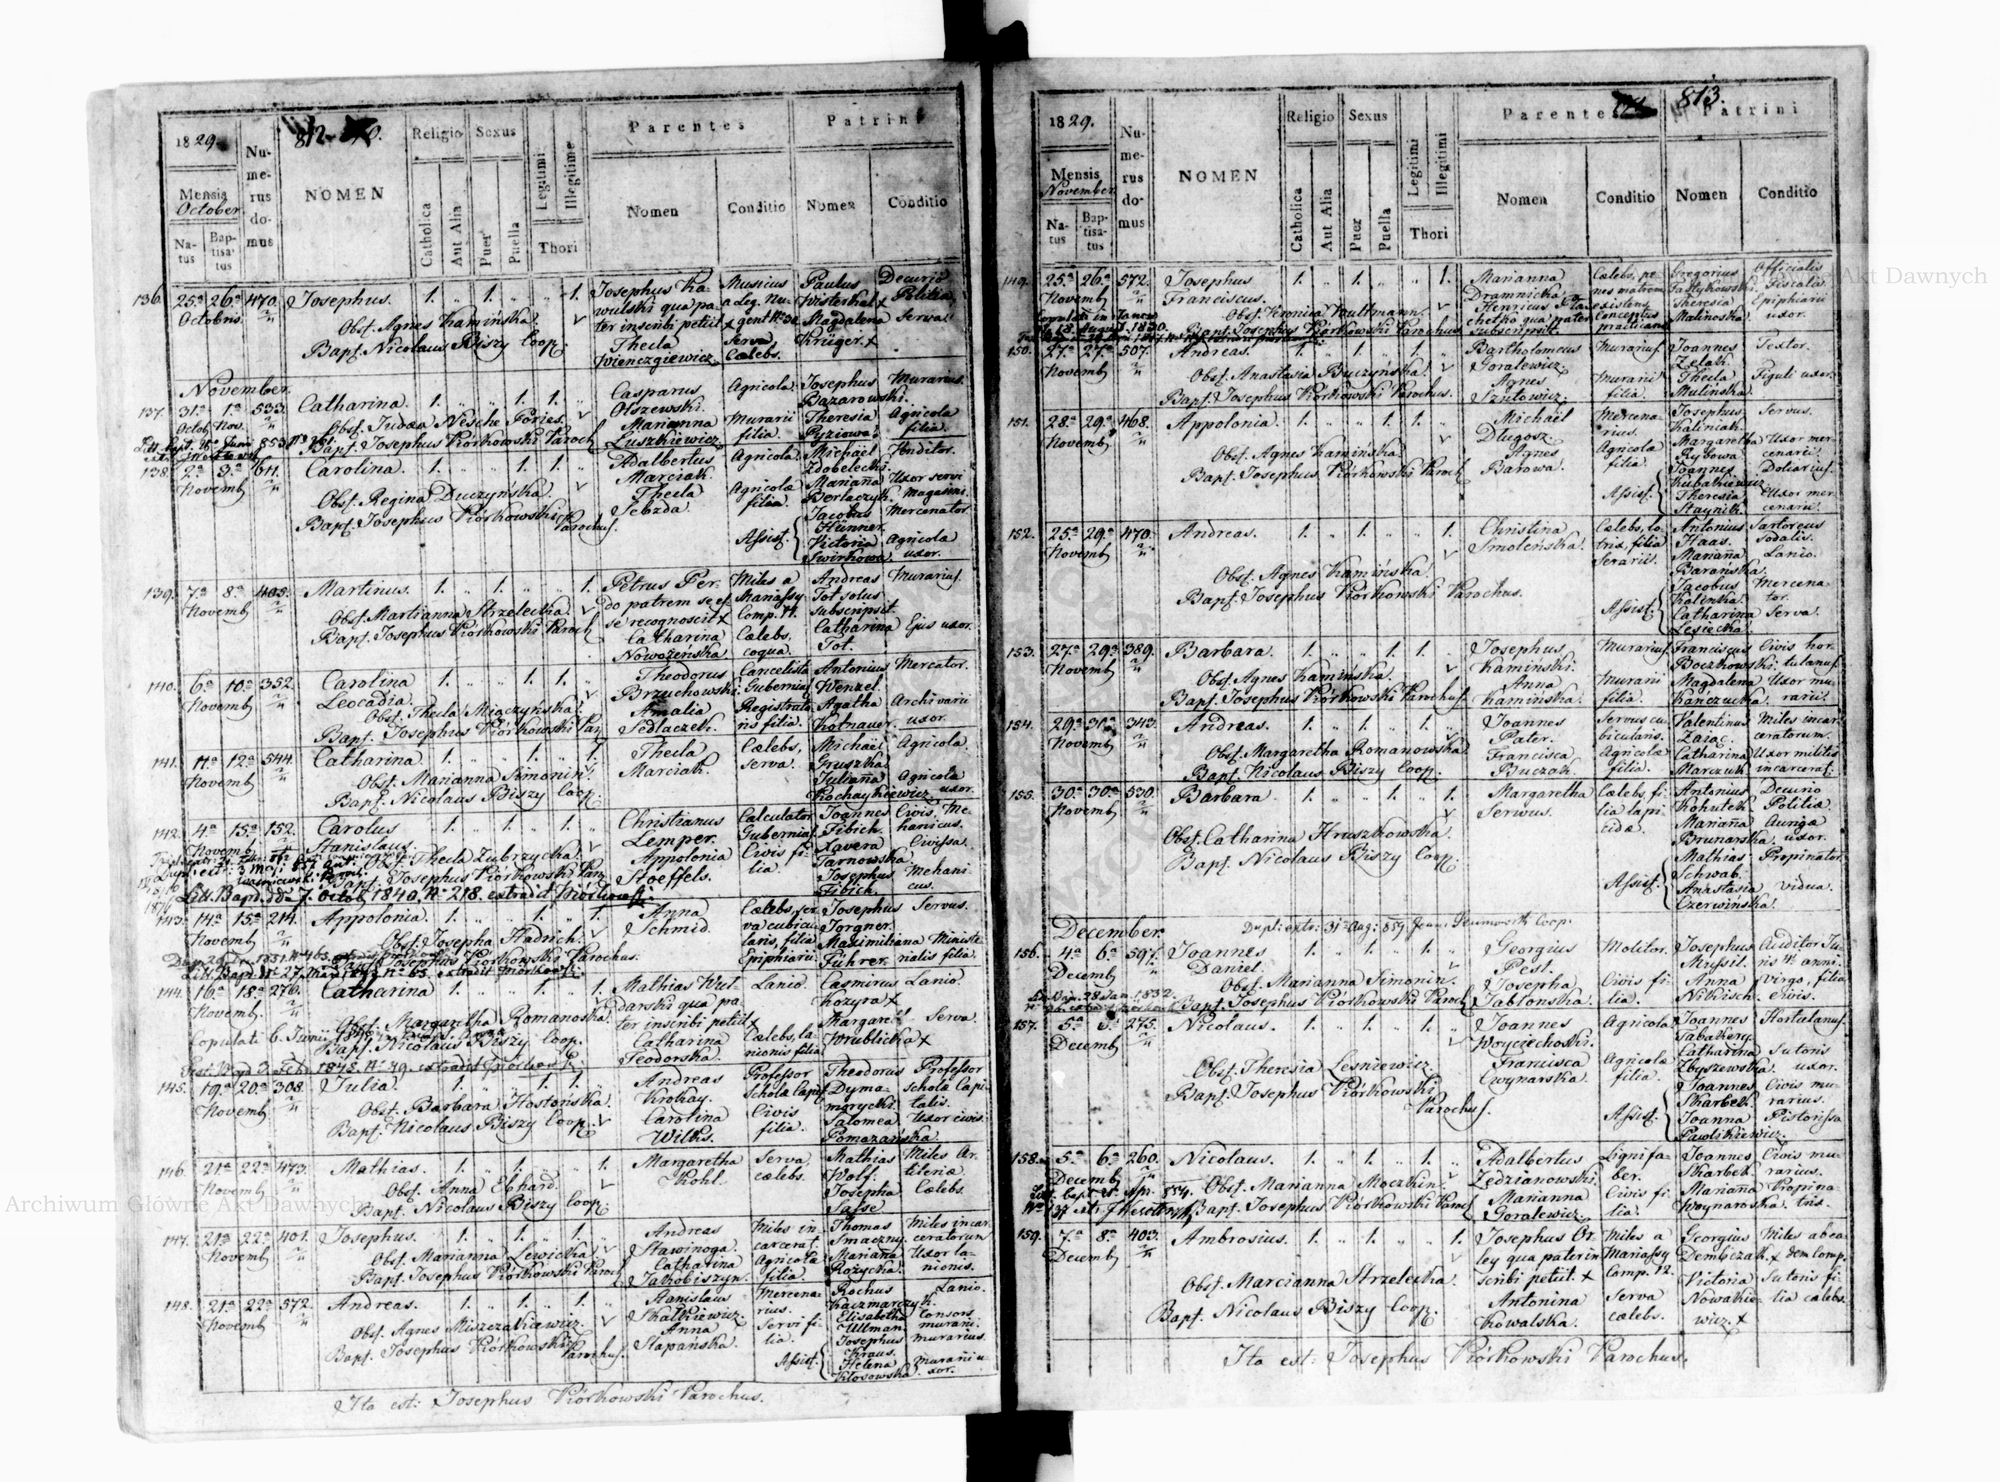 812
1829
Nu-
me-
rus
do-
mus
NOMEN
Religio
Sexus
Parentes
Patrini
Mensis
October
Na-
tus
Bap-
tisa-
tus
Catholica
Aut Alia
Puer
Puella
Legitimi
Illegitime
Thori
Nomen
Conditio
Nomen
Conditio
136. 25a 26a 470. Josephus. 1. 1. 1.
Octobris
Obst. Agnes Kamińska.
Bapt. Nicolaus Biszy Coop.
Josephus Ka-
wulski qua pa-
ter inscribi petiit x
Thecla
Wienczgiewicz.
Musicus
a Leg. Nu-
gent No 30
Serva
Cælebs.
Paulus
Wisterhal x
Magdalena
Krüger. x
Decurio
Politiæ
Serva
November.
137. 31a 1a 533. Catharina. 1. 1. 1.
Octob. Nov.
Obst. Judæa Nesche Pories.
Bapt. Josephus Piórkowski Paroch
Casparus
Olszewski.
Marianna
Luszkiewicz
Agricola
Murarii
filia.
Josephus
Bazarowski.
Theresia
Pyziowa
Murarius.
Agricola
filia.
138. 2a 3a 611. Carolina. 1. 1. 1.
Novemb
Obst. Regina Duczyńska.
Bapt. Josephus Piórkowski
Parochus.
Adalbertus
Marciak.
Thecla
Sobzda.
Agricola.
Agricolæ
filia.
Michael
Zdobelecki.
Mariana
Berlaczyk.
Jacobus
Hünner.
Victoria
Swirkowa.
Anditor.
Uxor servi
magasini.
Mercenator
Agricola
uxor.
Assist.
139. 7a 8a 403. Martinus. 1. 1. 1.
Novemb
Obst. Martianna Strzelecka.
Bapt. Josephus Piórkowski Paroch
Petrus Per-
do patrem se es-
se recognoscit x
Catharina
Nowożeńska
Miles a
Mariassy
Comp. 11.
Cælebs.
coqua.
Andreas
Tot solus
subscripsit.
Catharina
Tot.
Murarius.
Ejus uxor.
140. 6a 10a 352. Carolina 1. 1. 1.
Novemb Leocadia.
Obst. Thecla Miączyńska.
Bapt. Josephus Piórkowski Par
Theodorus
Brzuchowski.
Amalia
Sedlaczek.
Cancelista
Gubernial
Registrato
ris filia.
Antonius
Wenzel.
Agatha
Kotnauer.
Mercator.
Archivarii
uxor.
141. 11a 12a 544. Catharina. 1. 1. 1.
Novemb
Obst. Marianna Simonin.
Bapt. Nicolaus Biszy Coop.
Thecla
Marciak.
Cælebs,
serva.
Michael
Gruszka
Juliana
Kochaykiewicz
Agricola.
Agricola
uxor.
142. 4a 15a 152. Carolus 1. 1. 1.
Novemb Stanislaus.
Obst. Thecla Zubrzycka.
Bapt. Josephus Piórkowski Par
Litt. Bapt. dd 7. Octob 1840 No 218. extradit
Christianus
Lemper.
Appolonia
Stoeffels.
Calculator
Gubernial
Civis fi-
lia.
Joannes
Fibich.
Xavera
Tarnowska.
Josephus
Fibich.
Civis, Me-
hanicus.
Civissa.
Mehani
cus.
143. 14a 15a 214. Appolonia. 1. 1. 1.
Novemb
Obst. Josepha Hadrich.
Bapt. Josephus Piórkowski Parochus.
Anna
Schmid.
Cælebs, ser
va cubicu
laris, filia
Epiphiarii.
Josephus
Jorgner.
Maximiliana
Führer.
Servus.
Ministe
rialis filia.
144. 16a 18a 276. Catharina 1. 1. 1.
Novemb.
Copulati 6. Junii
Obst. Margaretha Romanoska.
Bapt. Nicolaus Biszy Coop.
Mathias Wul-
darski qua pa-
ter inscribi petiit x
Catharina
Teodorska.
Lanio.
Cælebs, la-
nionis filia
Casmirus
Kozyra x
Margaret
Wrublicka x
Lanio.
Serva.
145. 19a 20a 308. Julia. 1. 1. 1.
Novemb
Obst. Barbara Hostońska.
Bapt. Nicolaus Biszy Coop.
Andreas
Krokay.
Carolina
Wilks.
Professor
Scholæ Capit
Civis
filia.
Theodorus
Dyma-
morycki.
Salomea
Pomazańska
Professor
schola Capi
talis.
Uxor civis.
146. 21a 22a 473. Mathias. 1. 1. 1.
Novemb
Obst. Anna Ekhard.
Bapt. Nicolaus Biszy Coop.
Margaretha
Kohl.
Serva,
cælebs.
Mathias
Wolf.
Josepha
Sasse
Miles Ar-
tileriæ
Cælebs.
147. 21a 22a 401. Josephus. 1. 1. 1.
Novemb
Obst. Marianna Lewicka.
Bapt. Josephus Piórkowski Paroch
Andreas
Stawinoga.
Catharina
Jakobiszyn.
Miles in
carcerat.
Agricolæ
filia.
Thomas
Smaczny.
Mariana
Rożycka.
Miles incar
ceratorum
Uxor la-
nionis.
148. 21a 22a 572. Andreas. 1. 1. 1.
Novemb
Obst. Agnes Miszczakiewicz.
Bapt. Josephus Piórkowski
Parochus.
Stanislaus
Skalkiewicz.
Anna
Stapańska.
Mercena-
rius.
Servi fi-
lia.
Rochus
Kaczmarczyk.
Elisabetha
Ullman.
Josephus
Kraus.
Helena
Klosowska
Lanio.
Consors
murarii.
murarius.
Murarii u
xor.
Assist.
Ita est: Josephus Piórkowski Parochus.
813.
1829.
Nu-
me-
rus
do-
mus
NOMEN
Religio
Sexus
Parentes
Patrini
Mensis
November
Na-
tus
Bap-
tisa-
tus
Catholica
Aut Alia
Puer
Puella
Legitimi
Illegitimi
Thori
Nomen
Conditio
Nomen
Conditio
149. 25a 26a 572. Josephus 1. 1. 1.
Novemb Franciscus.
Obst. Veronica Poultmann.
Bapt. Josephus Piórkowski Parochus
Marianna
Dramnicka
Henricus
chetko qua pater
subscripsit.
Cælebs, pe
nes matrem
existens
Conceptus
practicans
Gregorius
Fastykowski
Theresia
Malinoska
Officialis
Fiscalis.
Epiphiarii
uxor.
150. 27a 27a 507. Andreas. 1. 1. 1.
Novemb
Obst. Anastasia Buczyńska.
Bapt. Josephus Piórkowski Parochus.
Bartholomeus
Goralewicz.
Agnes
Szulowicz.
Murarius.
Murarii
filia.
Joannes
Zelak.
Thecla
Mulinska.
Textor.
Figuli uxor.
151. 28a 29a 468. Appolonia. 1. 1. 1.
Novemb
Obst. Agnes Kamińska.
Bapt. Josephus Piórkowski Paroch
Michael
Długosz.
Agnes
Barowa.
Mercena-
rius.
Agricola
filia.
Josephus
Kaliniak.
Margaretha
Rybowa
Joannes
Kubalkiewicz
Theresia
Staynik.
Servus.
Uxor mer-
cenarii.
Doliarius.
Uxor mer-
cenarii.
Assist.
152. 25a 29a 470. Andreas. 1. 1. 1.
Novemb
Obst. Agnes Kamińska.
Bapt. Josephus Piórkowski Parochus.
Christina
Smoleńska.
Cælebs, lo-
trix, filia
Serarii.
Antonius
Haas.
Mariana
Barańska.
Jacobus
Kalinka.
Catharina
Lesiecka.
Sartoreus
sodalis.
Lanio.
Mercena
tor.
Serva.
Assist.
153. 27a 29a 389. Barbara. 1. 1. 1.
Novemb
Obst. Agnes Kamińska.
Bapt. Josephus Piórkowski Parochus.
Josephus
Kamiński.
Anna
Kamińska.
Murarius
Murarii
filia.
Franciscus
Boczkowski.
Magdalena
Kańczucka.
Civis hor
tulanus.
Uxor mu-
rarii.
154. 29a 30a 343. Andreas. 1. 1. 1.
Novemb
Obst. Margaretha Romanowska.
Bapt. Nicolaus Biszy Coop.
Joannes
Pater.
Francisca
Buczak.
Servus cu
bicularis.
Agricolæ
filia.
Valentinus
Zaiąc.
Catharina
Marczuk
Miles incar
ceratorum.
Uxor militis
incarcerat.
155. 30a 30a 530. Barbara 1. 1. 1.
Novemb
Obst. Catharina Hruszkowska.
Bapt. Nicolaus Biszy Coop.
Margaretha
Serwus.
Cælebs, fi
lia lapi
cidæ.
Antonius
Kohutek
Mariana
Brunarska.
Mathias
Schwab.
Anastasia
Czerwińska.
Decurio
Politiæ
Aurigæ
uxor.
Propinator
vidua.
Assist.
December.
156. 4a 6a 597. Joannes 1. 1. 1.
Decemb Daniel.
Obst. Marianna Simonin.
Bapt. Josephus Piórkowski Paroch
Georgius
Pest.
Josepha
Jablonska.
Molitor.
Civis fi-
lia.
Josephus
Mussil.
Anna
Nikisch.
Auditor Ju
ris 4ti anni.
Virgo, filia
civis.
157. 5a 6a 275. Nicolaus. 1. 1. 1.
Decemb
Obst. Theresia Lesniewicz.
Bapt. Josephus Piórkowski
Parochus.
Joannes
Woyciechoski.
Francisca
Cwynarska.
Agricola
Agricolæ
filia.
Joannes
Sabakery.
Catharina
Zbyszewska
Joannes
Skarbek
Joanna
Pawlikiewicz.
Hortulanus.
Sutoris
uxor.
Civis mu-
rarius.
Pistorissa
Assist.
158. 5a 6a 260. Nicolaus. 1. 1. 1.
Decemb
Obst. Marianna Moczkin.
Bapt. Josephus Piórkowski Paroch
Adalbertus
Zędzianowski.
Marianna
Goralewicz.
Lignifa-
ber.
Civis fi-
lia.
Joannes
Skarbek
Mariana
Woynaroska.
Civis mu-
rarius.
Propina-
tris.
159. 7a 8a 403. Ambrosius. 1. 1. 1.
Decemb
Obst. Marcianna Strzelecka.
Bapt. Nicolaus Biszy Coop.
Josephus Or.
ley qua pater in
scribi petiit. x
Antonina
Kowalska.
Miles a
Mariassy
Comp. 12.
Serva
cælebs.
Georgius
Dembiczak x
Victoria
Nowakie-
wicz. x
Miles ab ea-
dem Comp.
Sutoris fi-
lia cælebs.
Ita est: Josephus Piórkowski Parochus.
Archiwum Główne Akt Dawnych